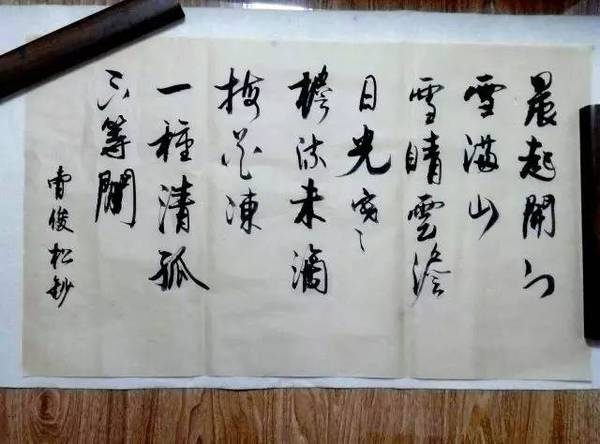 晨起開門
雪滿山
雪晴雲澹
日光寒
檐流未滴
梅花凍
一種清孤
不等閒
曹俊松鈔